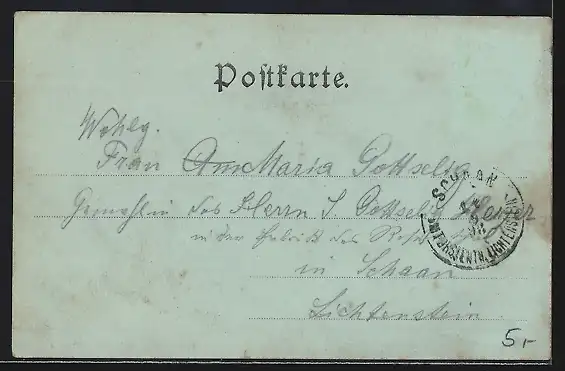 Postkarte.
Wohlg.
Frau AnnMaria Gottselig
Gemahlin des Herrn J Gottselig
in der Fabrik des
in Schaan
Lichtenstein
SCHAAN
FÜRSTENTH. LICHTENSTEIN
5,-